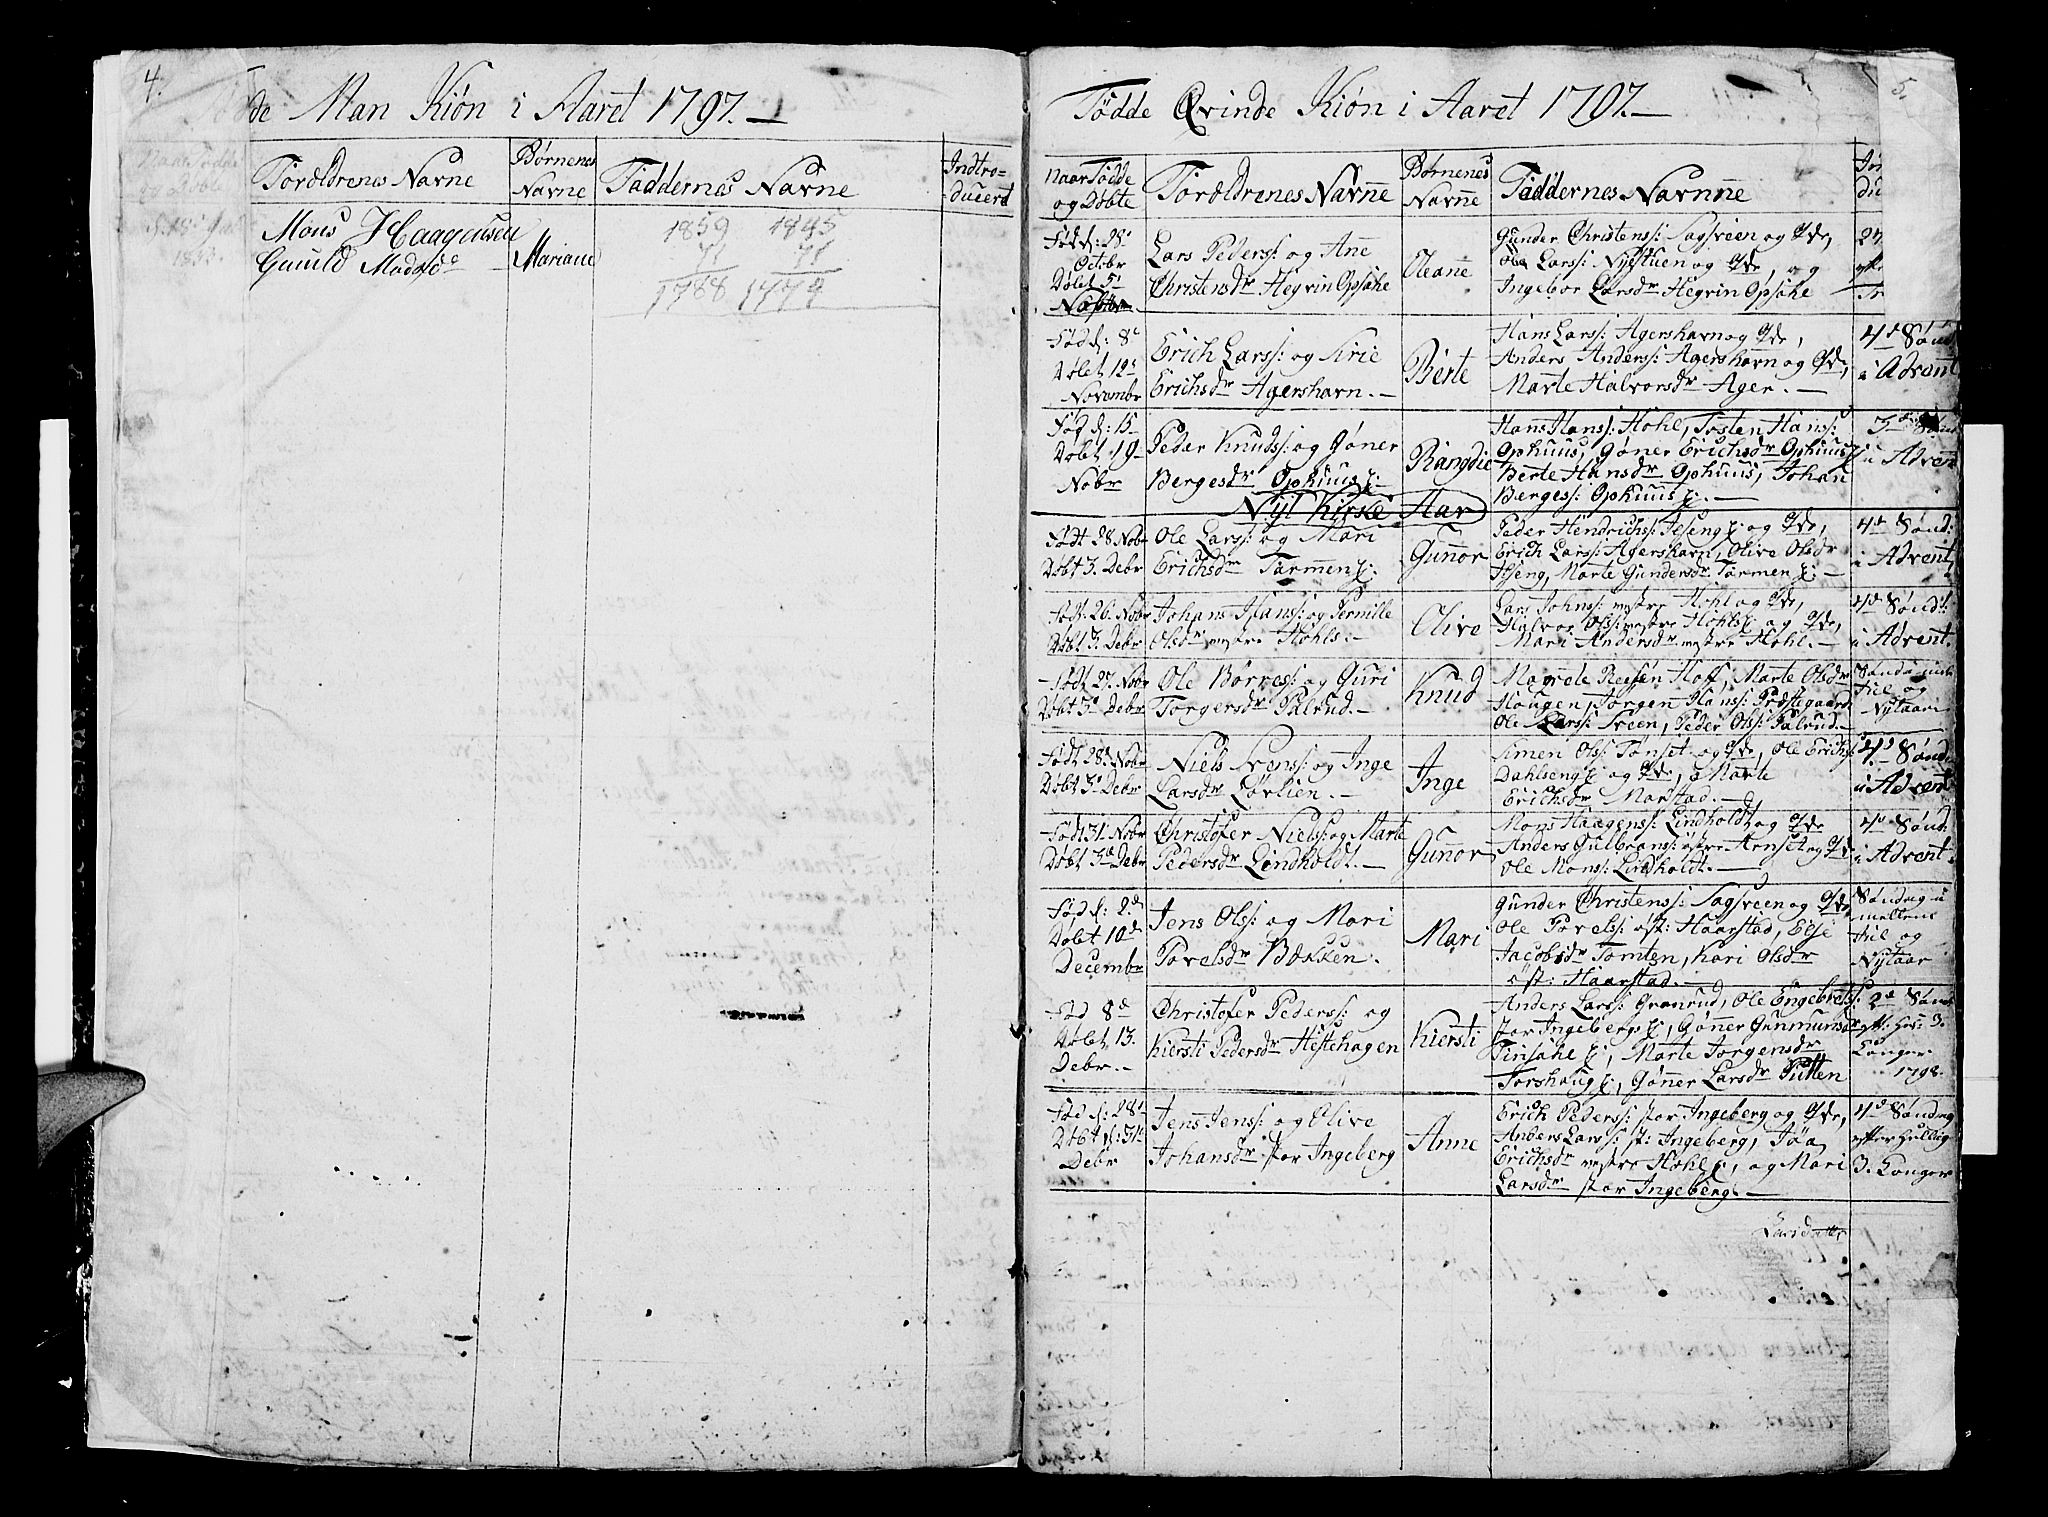 4.
Fødde Man Kiøn i Aaret 1797. —
Naar Fødde
og Døbte
Foreldrenes Navne
Børnenes
Navne
Faddernes Navne
Indtro-
ducerd
Mons Haagensen
Gunild Madsd
Mariane
1859 1845
71 71
1788 1774
5.
Fødde Qvinde Kiøn i Aaret 1797. —
Naar Fødde
og Døbte
Foreldrenes Navne
Børnenes
Navne
Faddernes Navne
Fød d: 28
Octobr
Døbt 5
Lars Peders: og Ane
Christensdr Hegvin Opsahe
Oleane
Gunder Christens: Sagsveen og qde,
Ole Larss: Nysethen og qde, og
Ingebor Larsdr Hegvin Opsahe
Fød d: 8
Døbt 12
Novembr
Erich Larss: og Sirie
Erichsdr Agersharn. —
Berte
Hans Larss: Agersharn og qde,
Anders Anderss: Agersharn og qde,
Marte Halvorsdr Ager. —
4de Sønd
i Advent
Fød d: 15
Døbt 19
Nobr
Peder Knuds: og Gøner
Bergesdr Ophuus
Rangdie
Hans Hans: Hohl, Tosten Hans:
Ophuus, Gøner Erichsdr Ophuus
Berte Hansdr Ophuus, Johan
Bergess: Ophuus —
3de Sønd
i Advent
Nyt Kirke Aar
Født 28 Nobr
Døbt 3. Debr
Ole Larss: og Mari
Erichsdr Farmen
Gunnor
Peder Hendrichs: Jeseng og qde,
Erich Larss: Agersharn, Olive Olsdr
Hseng, Marte Gundersdr Farmen —
4de Sønd.
i Advent
Født 26. Nobr
Døbt 3. Debr
Johans Hans: og Pernille
Olsdr vestre Hohls. —
Olive
Lars Johns: vestre Hohl og qde,
Halvor Olss: vestre Hohls og qde,
Mari Andersdr vestre Hohl. —
4de Sønd:
i Advent.
Født 27. Nobr
Døbt 3 Debr
Ole Børress: og Guri
Torgersdr Palrud. —
Knud
Hoff, Marte Olsdr
Hougen, Jørgen Hans: Prøstegaard
Ole Larss: Sveen, Peder Olss: Palrud. —
Jul og
Nytaar
Født 28 Nobr
Døbt 3 Debr
Niels Svens: og Inge
Larsdr Lørlien. —
Inge
Simen Olss: Tønset og qde, Ole Erichs:
Dahlseng og qde, Marte
Erichsdr Marstad. —
4de Sønd
i Advent
Født 31 Nobr
Døbt 3 Debr
Christofer Niels: og Marte
Pedersdr Lindholdt. —
Gunnor
Mons Haagens: Lindholdt og qde
Anders Gulbrans: østre Arnset og qde
Ole Mons: Lindholdt. —
4de Sønd:
i Advent
Fød d: 2de
Døbt 10de
Decembr
Jens Olss: og Mari
Povelsdr Bækken.
Mari
Gunder Christens: Sagsveen og qde,
Ole Povels: øst: Haarstad, Elsi
Jacobsdr Tomten, Kari Olsdr
øst: Haarstad. —
Søndag i
mellem
Jul og
Nytaar
Fød 8de
Døbt 13.
Debr. —
Christofer Peders: og
Kiersti Pedersdr Hestehagen
Kiersti
Anders Larss: Granrud, Ole Engebrets:
stor Ingeberg, Gønner Gunmunsdr
Finsahe, Marte Jorgensdr
Torshoug, Gønner Larsdr Putten
2de Sønd
eft: Hell: 3.
Konger
1798.
Fød d: 28
Døbt d: 31te
Debr
Jens Jens: og Olive
Johansdr stor Ingeberg
Anne
Erich Peders: stor Ingeberg og qde,
Anders Larss: st: Ingeberg, Jøa
Erichsdr vestre Hohl, og Mari
Larsdr stor Ingeberg. —
4de Søndag
efter Hellig
3. Konger
Larsdatter